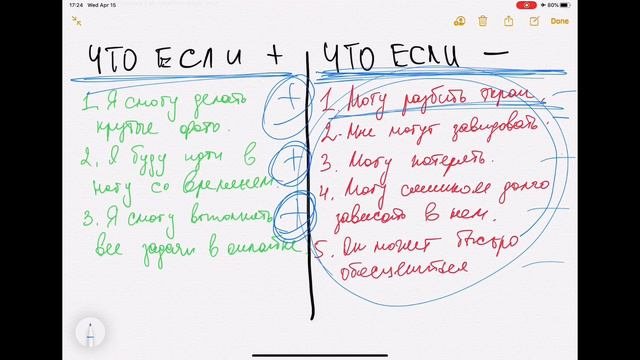 17:24 Wed Apr 15
80%
Done
ЧТО ЕСЛИ +
1. Я смогу делать
крутые фото.
2. Я буду идти в
ногу со временем.
3. Я смогу выполнять
все задачи в онлайне.
+
+
+
ЧТО ЕСЛИ —
1 Могу разбить экран.
2. Мне могут завидовать.
3. Могу потерять.
4. Могу слишком долго
зависать в нем.
5. Он может быстро
обесцениться